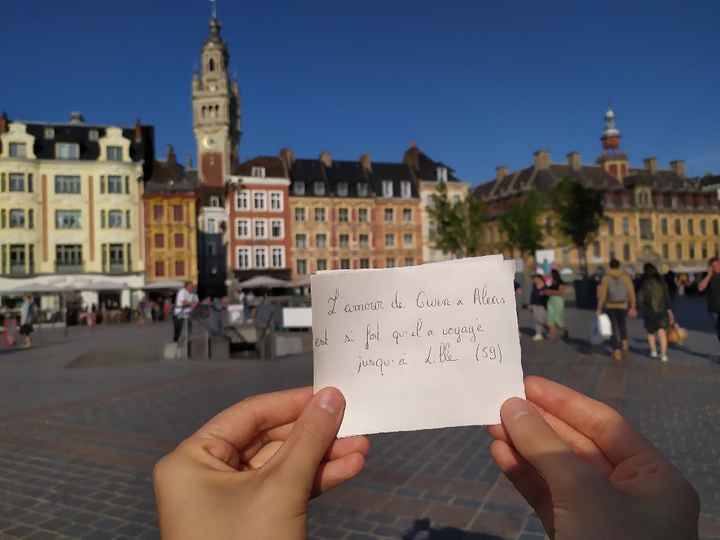 L'amour de Gwen & Alexis
est si fort qu'il a voyagé
jusqu'à Lille (59)